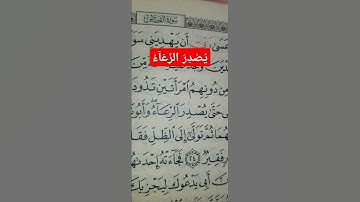 سُورَةُ القَصَصِ
عَسَىٰ رَبِّي أَن يَهْدِيَنِي سَوَا
يُصْدِرَ الرِّعَآءُ
مِن دُونِهِمُ ٱمْرَأَتَيْنِ تَذُودَ
حَتَّىٰ يُصْدِرَ ٱلرِّعَآءُ وَأَبُونَ
هُمَا ثُمَّ تَوَلَّىٰٓ إِلَى ٱلظِّلِّ فَقَا
فَقِيرٌ ٢٤ فَجَآءَتْهُ إِحْدَىٰهُ
أَبِي يَدْعُوكَ لِيَجْزِيَكَ